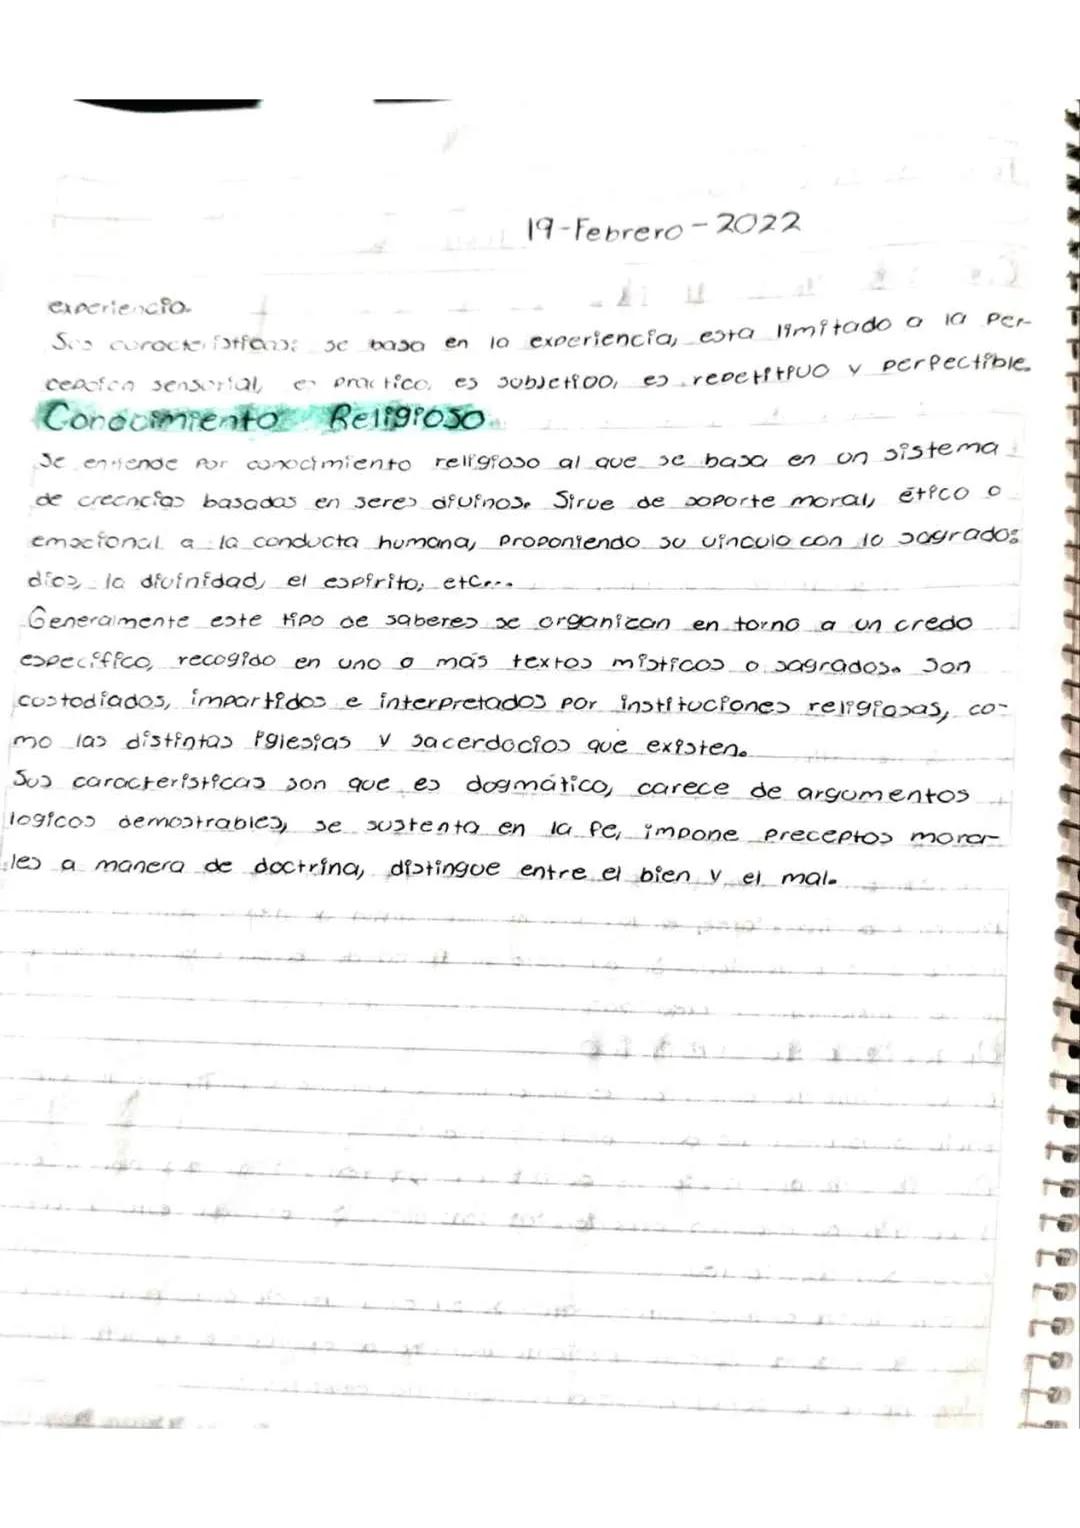 19-Febrero-2022
experiencia.
Sus caracteristicas: se basa en la experiencia, esta limitado a la per-
cepcion sensorial, es practico, es subjetivo, es repetitivo y perpectible.
Conocimiento Religioso
Se entiende por conocimiento religioso al que se basa en un sistema
de creencias basadas en seres divinos. Sirve de soporte moral, ético o
emocional a la conducta humana, proponiendo su vinculo con lo sagrado:
dios, la divinidad, el espiritu, etc...
Generalmente este tipo de saberes se organizan en torno a un credo
especifico, recogido en uno o más textos misticos o sagrados. Son
custodiados, impartidos e interpretados por instituciones religiosas, co-
mo las distintas iglesias y sacerdocios que existen.
Sus caracteristicas son que es dogmático, carece de argumentos
logicos demostrables, se sustenta en la fe, impone preceptos mora-
les a manera de doctrina, distingue entre el bien y el mal.